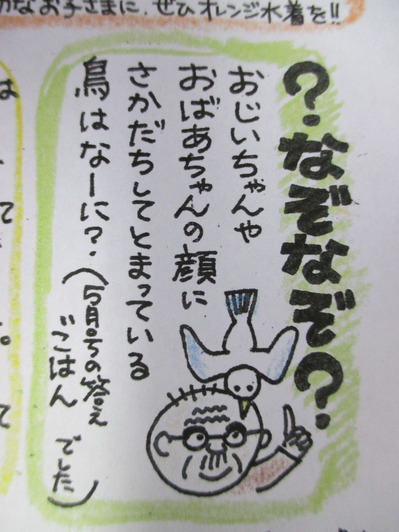 なお子さまに、ぜひオレンジ水着を!!
?なぞなぞ?
おじいちゃんや
おばあちゃんの顔に
さかだちしてとまっている
鳥はなーに?
(5月号の答え
ごはん でした)
は
て
。
て